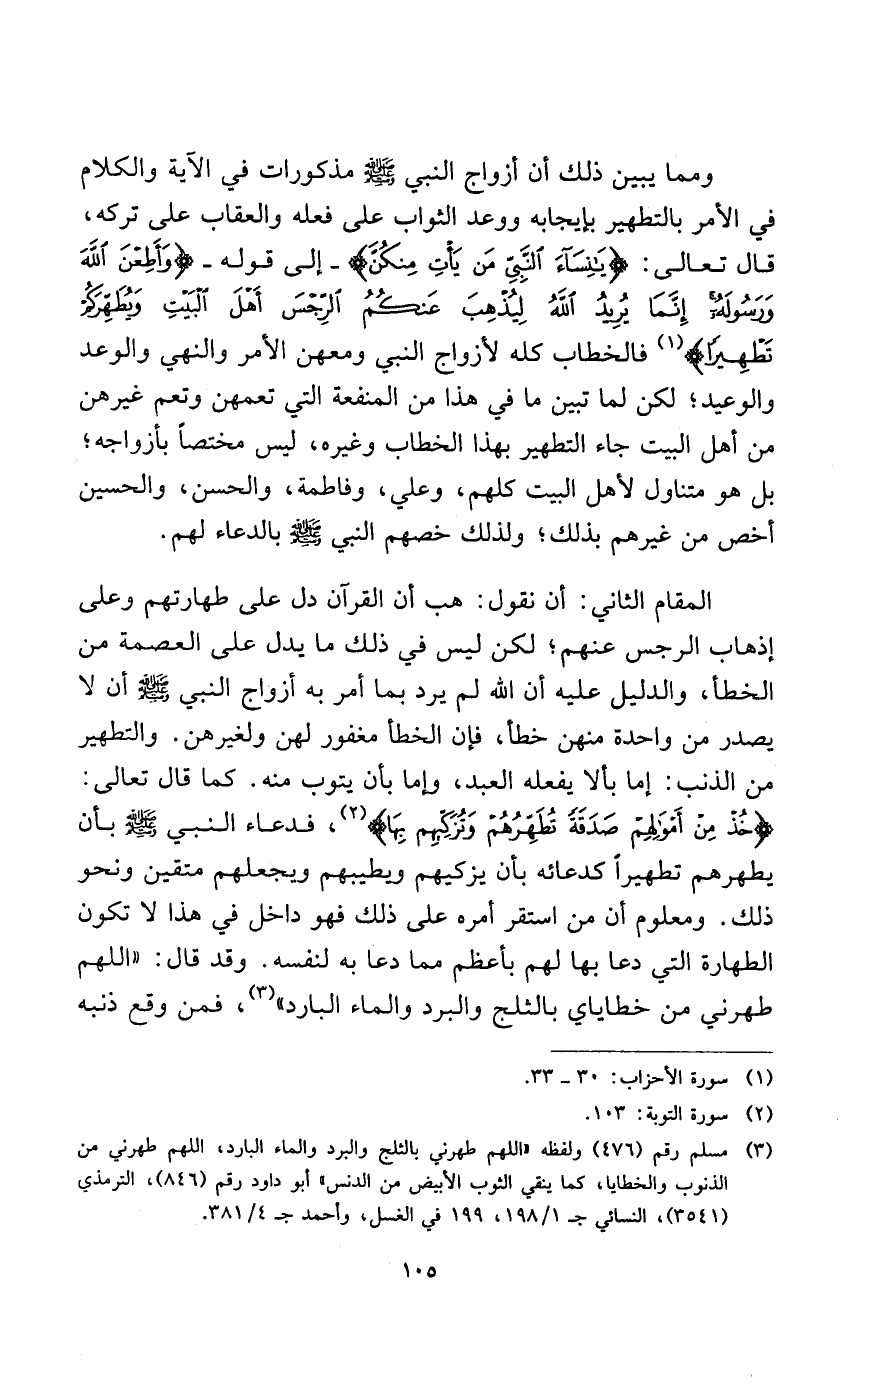 ومما يبين ذلك أن أزواج النبي ﷺ مذكورات في الآية والكلام
في الأمر بالتطهير بإيجابه ووعد الثواب على فعله والعقاب على تركه،
قال تعالى: ﴿يَٰنِسَآءَ ٱلنَّبِيِّ مَن يَأْتِ مِنكُنَّ﴾ ـ إلى قوله ـ ﴿وَأَطِعْنَ ٱللَّهَ
وَرَسُولَهُۥٓ إِنَّمَا يُرِيدُ ٱللَّهُ لِيُذْهِبَ عَنكُمُ ٱلرِّجْسَ أَهْلَ ٱلْبَيْتِ وَيُطَهِّرَكُمْ
تَطْهِيرًا﴾(١) فالخطاب كله لأزواج النبي ومعهن الأمر والنهي والوعد
والوعيد؛ لكن لما تبين ما في هذا من المنفعة التي تعمهن وتعم غيرهن
من أهل البيت جاء التطهير بهذا الخطاب وغيره، ليس مختصاً بأزواجه؛
بل هو متناول لأهل البيت كلهم، وعلي، وفاطمة، والحسن، والحسين
أخص من غيرهم بذلك؛ ولذلك خصهم النبي ﷺ بالدعاء لهم.
المقام الثاني: أن نقول: هب أن القرآن دل على طهارتهم وعلى
إذهاب الرجس عنهم؛ لكن ليس في ذلك ما يدل على العصمة من
الخطأ، والدليل عليه أن الله لم يرد بما أمر به أزواج النبي ﷺ أن لا
يصدر من واحدة منهن خطأ، فإن الخطأ مغفور لهن ولغيرهن. والتطهير
من الذنب: إما بألا يفعله العبد، وإما بأن يتوب منه. كما قال تعالى:
﴿خُذْ مِنْ أَمْوَٰلِهِمْ صَدَقَةً تُطَهِّرُهُمْ وَتُزَكِّيهِم بِهَا﴾(٢)، فدعاء النبي ﷺ بأن
يطهرهم تطهيراً كدعائه بأن يزكيهم ويطيبهم ويجعلهم متقين ونحو
ذلك. ومعلوم أن من استقر أمره على ذلك فهو داخل في هذا لا تكون
الطهارة التي دعا بها لهم بأعظم مما دعا به لنفسه. وقد قال: «اللهم
طهرني من خطاياي بالثلج والبرد والماء البارد»(٣)، فمن وقع ذنبه
(١) سورة الأحزاب: ٣٠ ـ ٣٣.
(٢) سورة التوبة: ١٠٣.
(٣) مسلم رقم (٤٧٦) ولفظه «اللهم طهرني بالثلج والبرد والماء البارد، اللهم طهرني من
الذنوب والخطايا، كما ينقي الثوب الأبيض من الدنس» أبو داود رقم (٨٤٦)، الترمذي
(٣٥٤١)، النسائي جـ ١٩٨/١، ١٩٩ في الغسل، وأحمد جـ ٣٨١/٤.
١٠٥